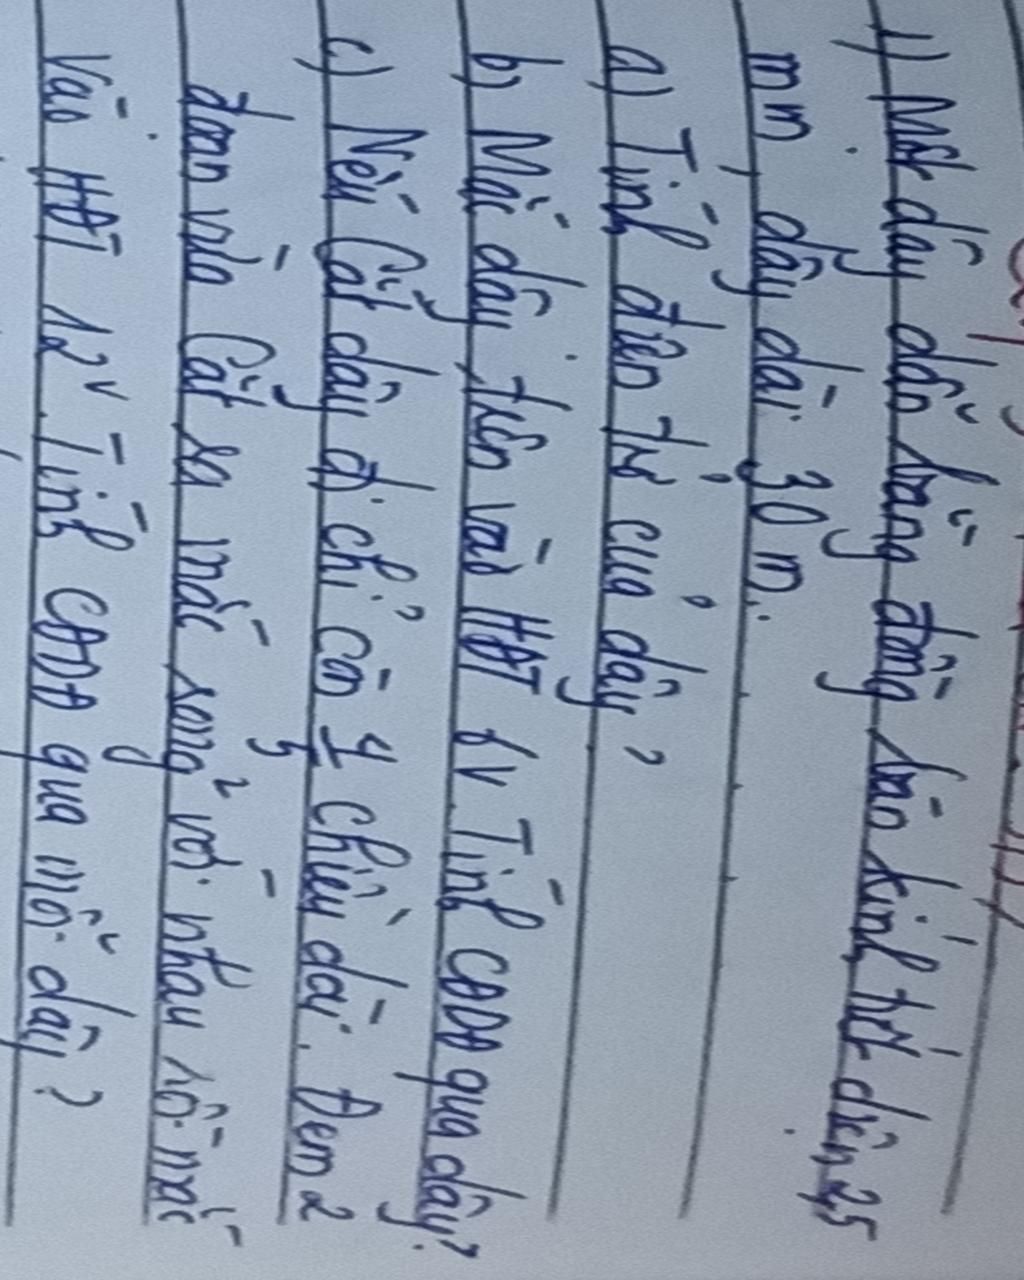 1) Một dây dẫn bằng đồng bán kính tiết diện 2,5
mm, dây dài 30 m.
a) Tính điện trở của dây?
b) Mắc dây trên vào HĐT 6V. Tính CĐDĐ qua dây?
c) Nếu Cắt dây đi chỉ còn 1/5 chiều dài. Đem 2
đoạn vừa Cắt ra mắc song² với nhau rồi mắc
vào HĐT 12V. Tính CĐDĐ qua mỗi dây?